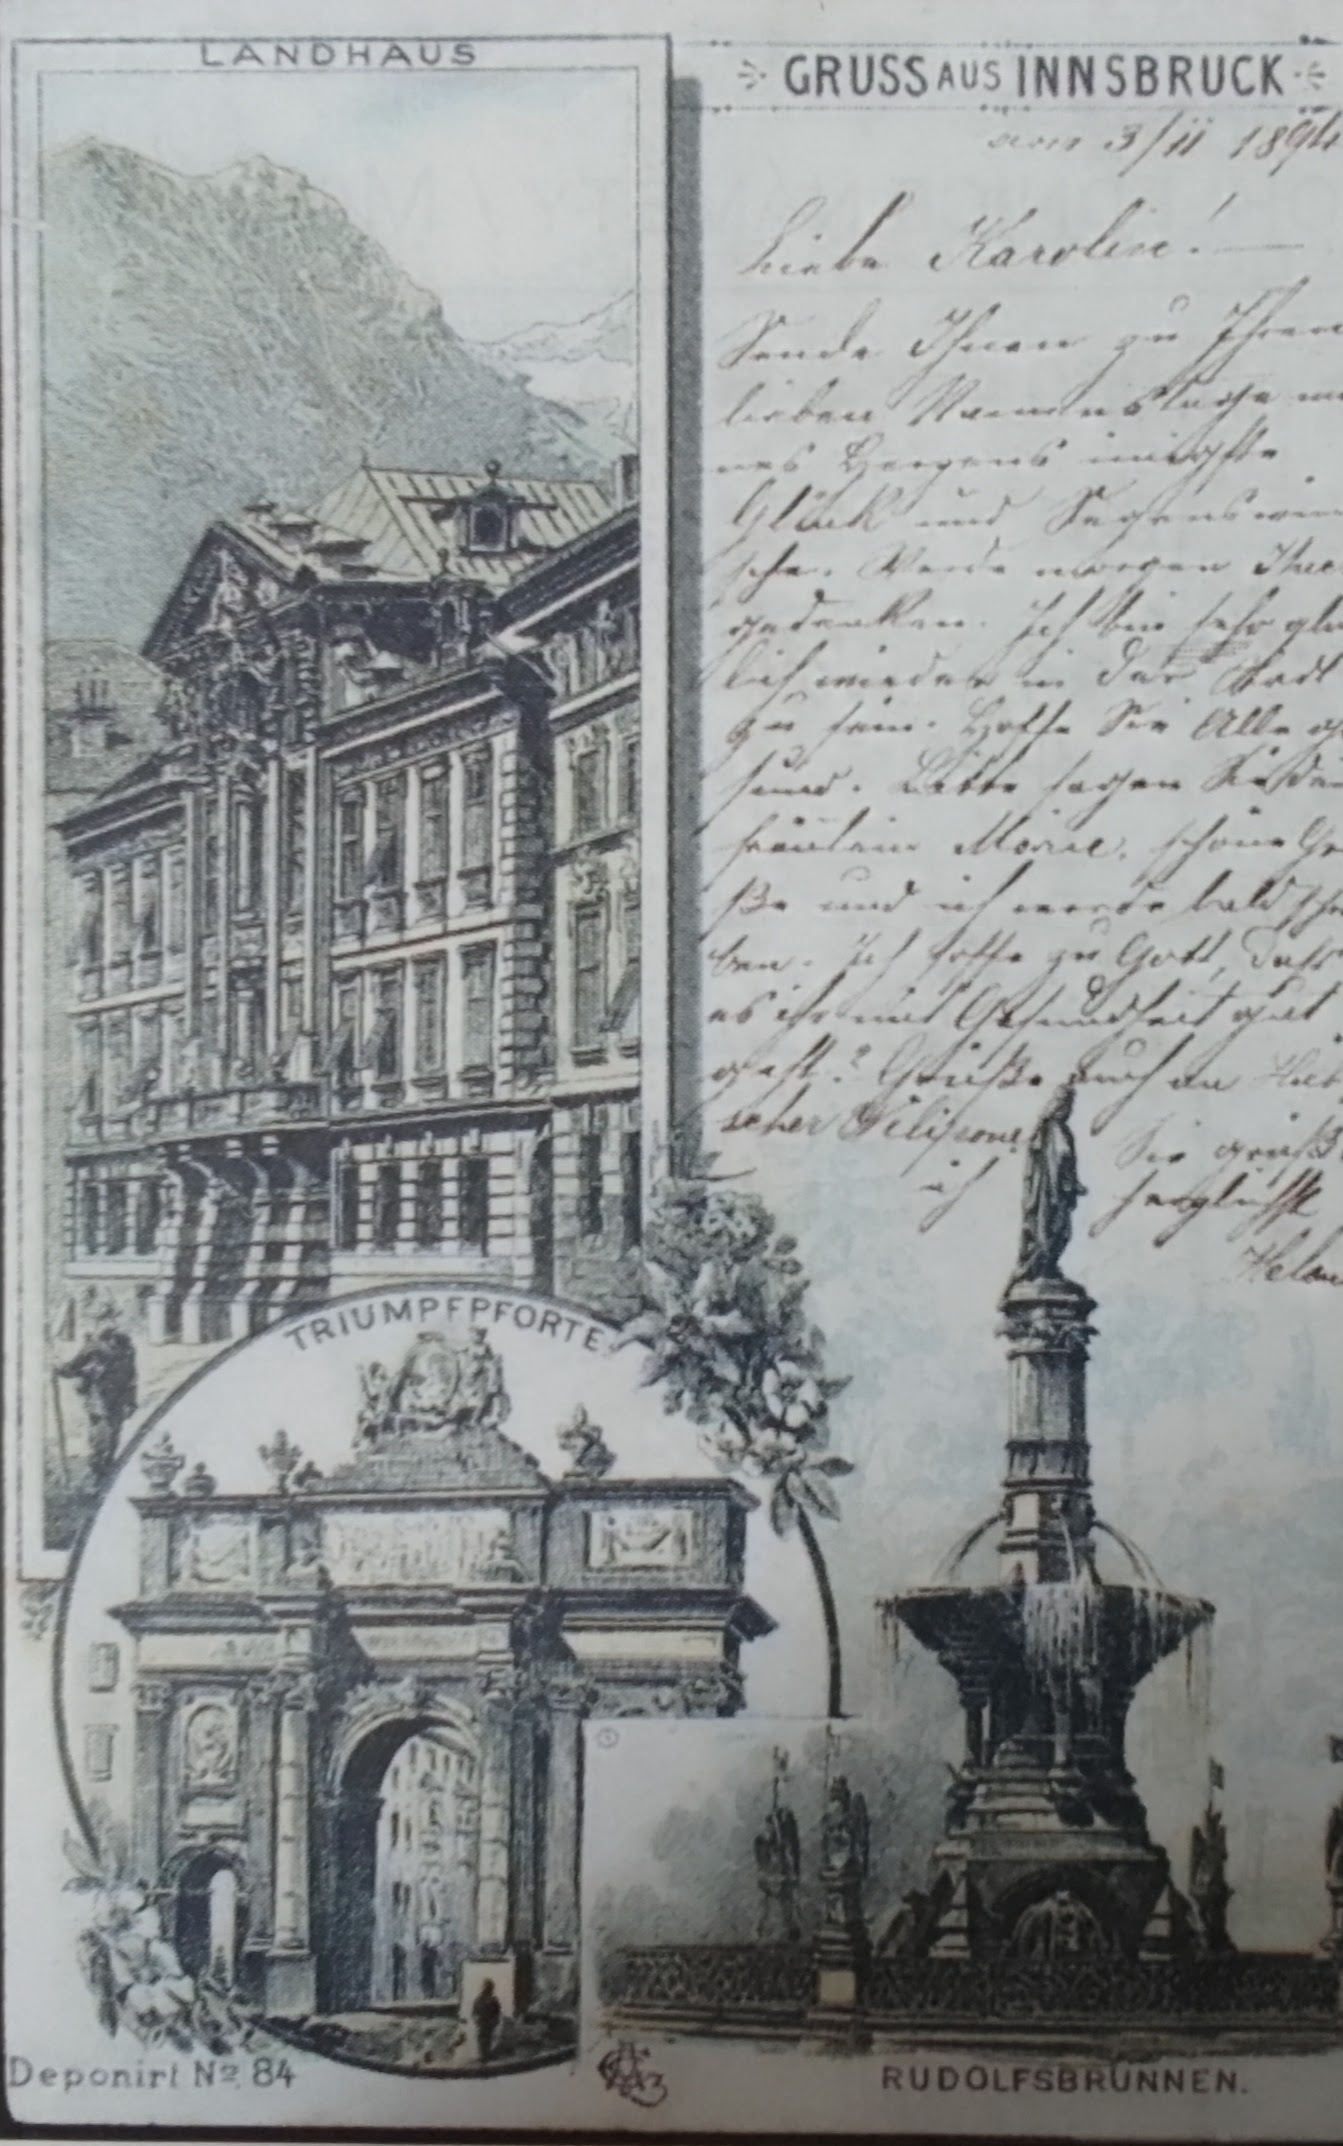 LANDHAUS
GRUSS AUS INNSBRUCK
am 3/11 1894
Liebe Karolin! —
Sende Ihnen zu Ihrem
lieben Namenstage mei
nes Herzens innigste
Glück und Segenswün
sche. Werde morgen Ihrer
gedenken. Ich bin sehr glü
lich wieder in der Stadt
zu sein. Hoffe Sie Alle ge
sund. Bitte sagen Sie dem
Fräulein Marie, schöne Grü
ße und ich werde bald schrei
ben. Ich hoffe zu Gott, daß
es ihr mit Gesundheit gut
geht? Grüße auch an
scher
Sie grüßt
ich herzlichst
TRIUMPFPFORTE.
Deponirt No. 84
RUDOLFSBRÜNNEN.